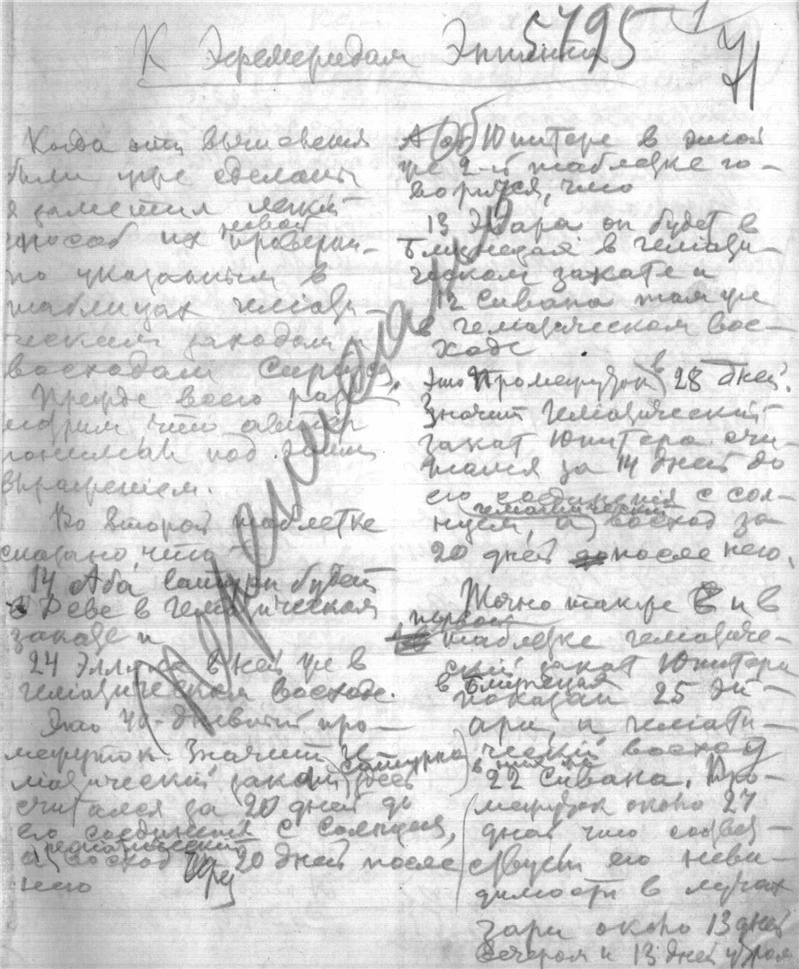 К Эфемеридам Эпплинга
5795
71
Когда эти вычисления
были уже сделаны
я заметил легкий
новой
способ их проверки
по указанным в
таблицах гелиаци-
ческим заходам и
восходам
Прежде всего рас-
смотрим что автор
понимал под этим
выражением.
Во второй таблетке
сказано, что
14 Аба Сатурн будет
в Деве в гелиаческом
закате и
24 Элула в ней уже в
гелиаческом восходе.
Это 40-дневный про-
межуток. Значит ге-
Сатурна
лиаческий закат здесь
считался за 20 дней до
его соединения с Солнцем,
гелиаческий
а восход чрез 20 дней после
него
Перепечатано
А об Юпитере в этой
же 2-й таблетке го-
ворится, что
13 Эдара он будет в
Близнецах в гелиаци-
ческом закате и
12 Сивана там же
в гелиаческом вос-
ходе
Это промежуток в 28 дней.
Значит гелиаческий
закат Юпитера счи-
тался за 14 дней до
его соединения с сол-
гелиаческий
нцем, а восход за
20 дней после него.
Точно также и в
первой
таблетке гелиаче-
ский закат Юпитера
в Близнецах
показан 25 Эй-
ари, а гелиати-
ческий восход
в них на
22 Сивана. Про-
межуток около 27
дней что соответ-
ствует его неви-
димости в лучах
зари около 13 дней
вечером и 13 дней утром